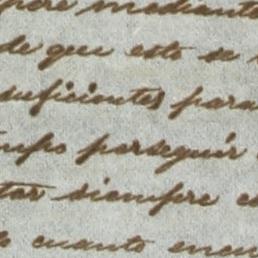 mediante
de que esto se
suficientes para
perseguir
siempre
cuanto